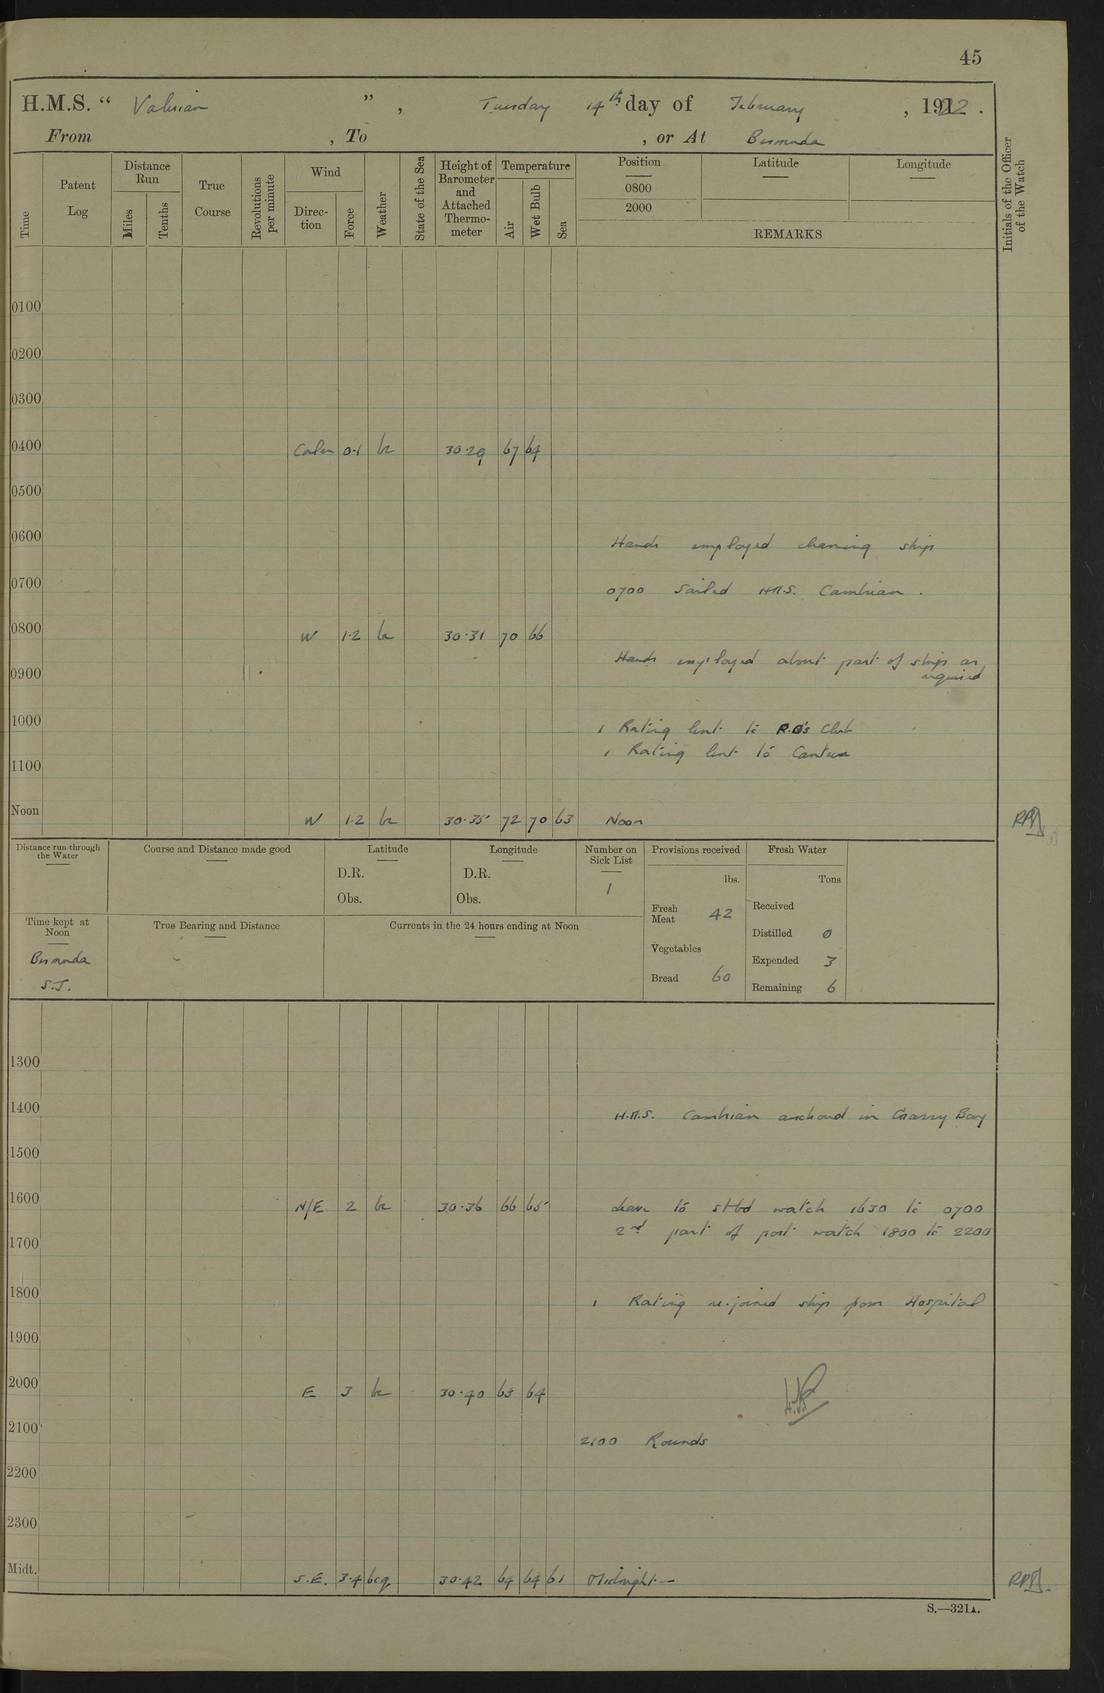 45
H.M.S. “ Valerian ” , Tuesday 14th day of February , 1922 .
From , To , or At Bermuda
Time
Patent Log
Distance Run
Miles
Tenths
True Course
Revolutions per minute
Wind
Direc-tion
Force
Weather
State of the Sea
Height of Barometer and Attached Thermo-meter
Temperature
Air
Wet Bulb
Sea
Position
0800
2000
Latitude
Longitude
REMARKS
Initials of the Officer of the Watch
0100
0200
0300
0400 Calm 0·1 bc 30·29 67 64
0500
0600 Hands employed cleaning ship
0700 0700 Sailed H.M.S. Cambrian .
0800 W 1·2 bc 30·31 70 66
Hands employed about part of ship as
0900 required
1000 1 Rating lent to R.O's Club
1 Rating lent to Canteen
1100
Noon W 1·2 bc 30·35 72 70 63 Noon
Distance run through the Water
Course and Distance made good
Latitude
D.R.
Obs.
Longitude
D.R.
Obs.
Number on Sick List
1
Provisions received
lbs.
Fresh Meat 42
Vegetables
Bread 60
Fresh Water
Tons
Received
Distilled 0
Expended 3
Remaining 6
Time kept at Noon
Bermuda
S.T.
True Bearing and Distance
Currents in the 24 hours ending at Noon
1300
1400 H.M.S. Cambrian anchored in Grassy Bay
1500
1600 N/E 2 bc 30·36 66 65 Leave to stbd watch 1630 to 0700
2nd part of port watch 1800 to 2200
1700
1800 1 Rating re-joined ship from Hospital
1900
2000 E 3 bc 30·40 65 64
2100 2100 Rounds
2200
2300
Midt. S.E. 3·4 bcq 30·42 64 64 61 Midnight —
S.—321A.